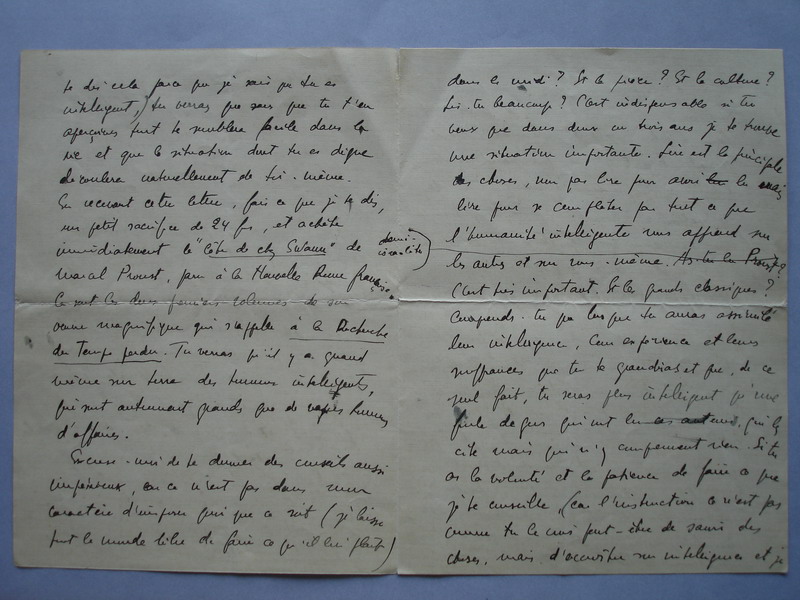 te dis cela parce que je sais que tu es
intelligent,) tu verras que sans que tu t'en
aperçoives tout te semblera facile dans la
vie et que la situation dont tu es digne
découlera naturellement de toi-même.
En recevant cette lettre, fais ce que je te dis,
un petit sacrifice de 24 frs, et achète
immédiatement le "côté de chez Swann" de
demi-
israélite
Marcel Proust, paru à la Nouvelle Revue française.
Ce sont les deux premiers volumes de son
œuvre magnifique qui s'appelle à la Recherche
du Temps perdu. Tu verras qu'il y a quand
même sur terre des hommes intelligents,
qui sont autrement grands que de hommes
d'affaires.
Excuse-moi de te donner des conseils aussi
impérieux, car ce n'est pas dans mon
caractère d'imposer quoi que ce soit (je laisse
tout le monde libre de faire ce qu'il lui plaît)
dans le midi? Et la pièce? Et la culture?
Lis-tu beaucoup? C'est indispensable si tu
veux que dans deux ou trois ans je te trouve
une situation importante. Lire est la principale
des choses, non pas lire pour avoir lu mais
lire pour se compléter par tout ce que
l'humanité intelligente nous apprend sur
les autres et sur nous-même. As-tu lu Proust?
C'est très important. Et les grands classiques?
Comprends-tu que lorsque tu auras assimilé
leur intelligence, leur expérience et leurs
souffrances que tu te grandiras et que, de ce
seul fait, tu seras plus intelligent qu'une
foule de gens qui ont lu ces auteurs, qui les
cite mais qui n'y comprennent rien. Si tu
as la volonté et la patience de faire ce que
je te conseille, (car l'instruction ce n'est pas
comme tu le crois peut-être de savoir des
choses, mais d'accroître son intelligence et je